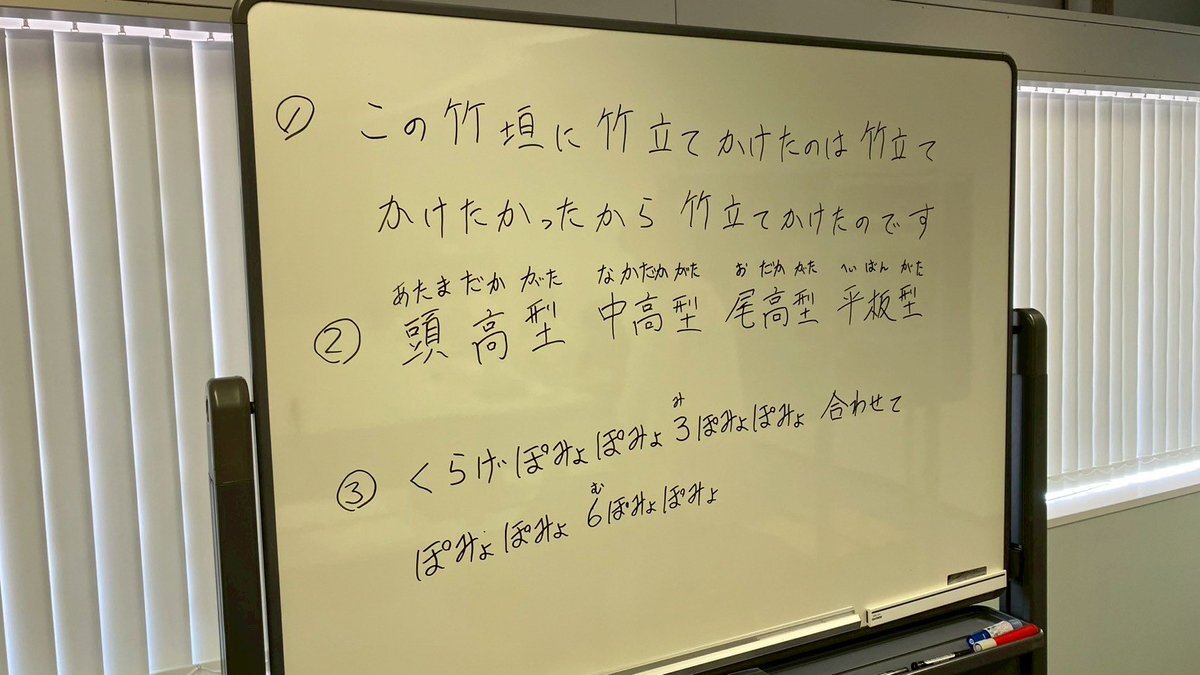 ① この竹垣に竹立てかけたのは竹立て
かけたかったから竹立てかけたのです
あたまだかがた なかだかがた おだかがた へいばんがた
② 頭高型 中高型 尾高型 平板型
み
③ くらげぽみょぽみょ3ぽみょぽみょ合わせて
む
ぽみょぽみょ6ぽみょぽみょ